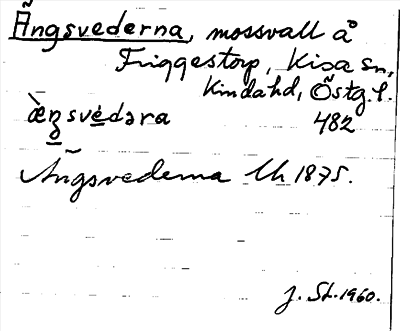 Ängsvederna, mossvall å
Friggestorp, Kisa sn,
Kinda hd, Östg. l.
æ̀ŋsvédəra 482
Ängsvederna Uh 1875.
J. St. 1960.